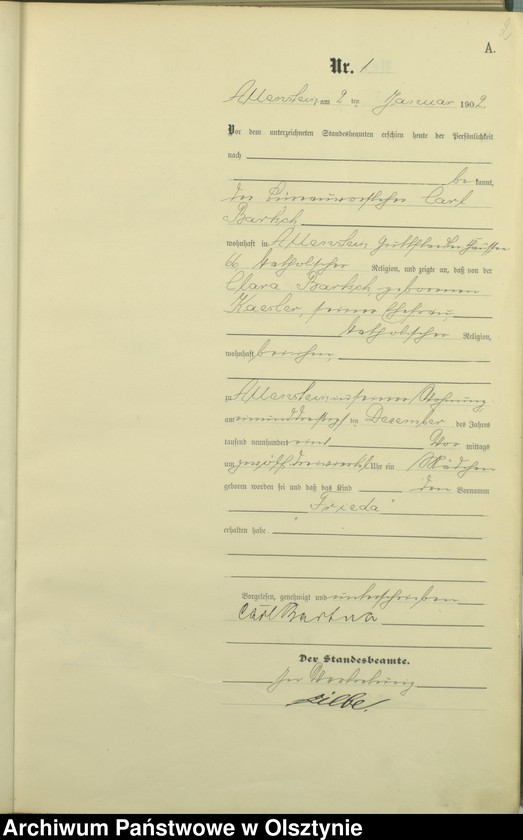 A.
Nr. 1
Allenstein am 2 ten Januar 1902
Vor dem unterzeichneten Standesbeamten erschien heute der Persönlichkeit
nach
be kannt,
der Carl
Bartsch
wohnhaft in Allenstein
6 katholischer Religion, und zeigte an, daß von der
Clara Bartsch, geborenen
Kaesler, seiner Ehefrau,
katholischer Religion,
wohnhaft bei ihm,
zu Allenstein in seiner Wohnung
am einunddreißigsten Dezember des Jahres
tausend neunhundert eins Vor mittags
um zwölf dreiviertel Uhr ein Mädchen
geboren worden sei und daß das Kind den Vornamen
Frieda
erhalten habe.
Vorgelesen, genehmigt und unterschrieben
Carl
Der Standesbeamte.
In Vertretung
Archiwum Państwowe w Olsztynie